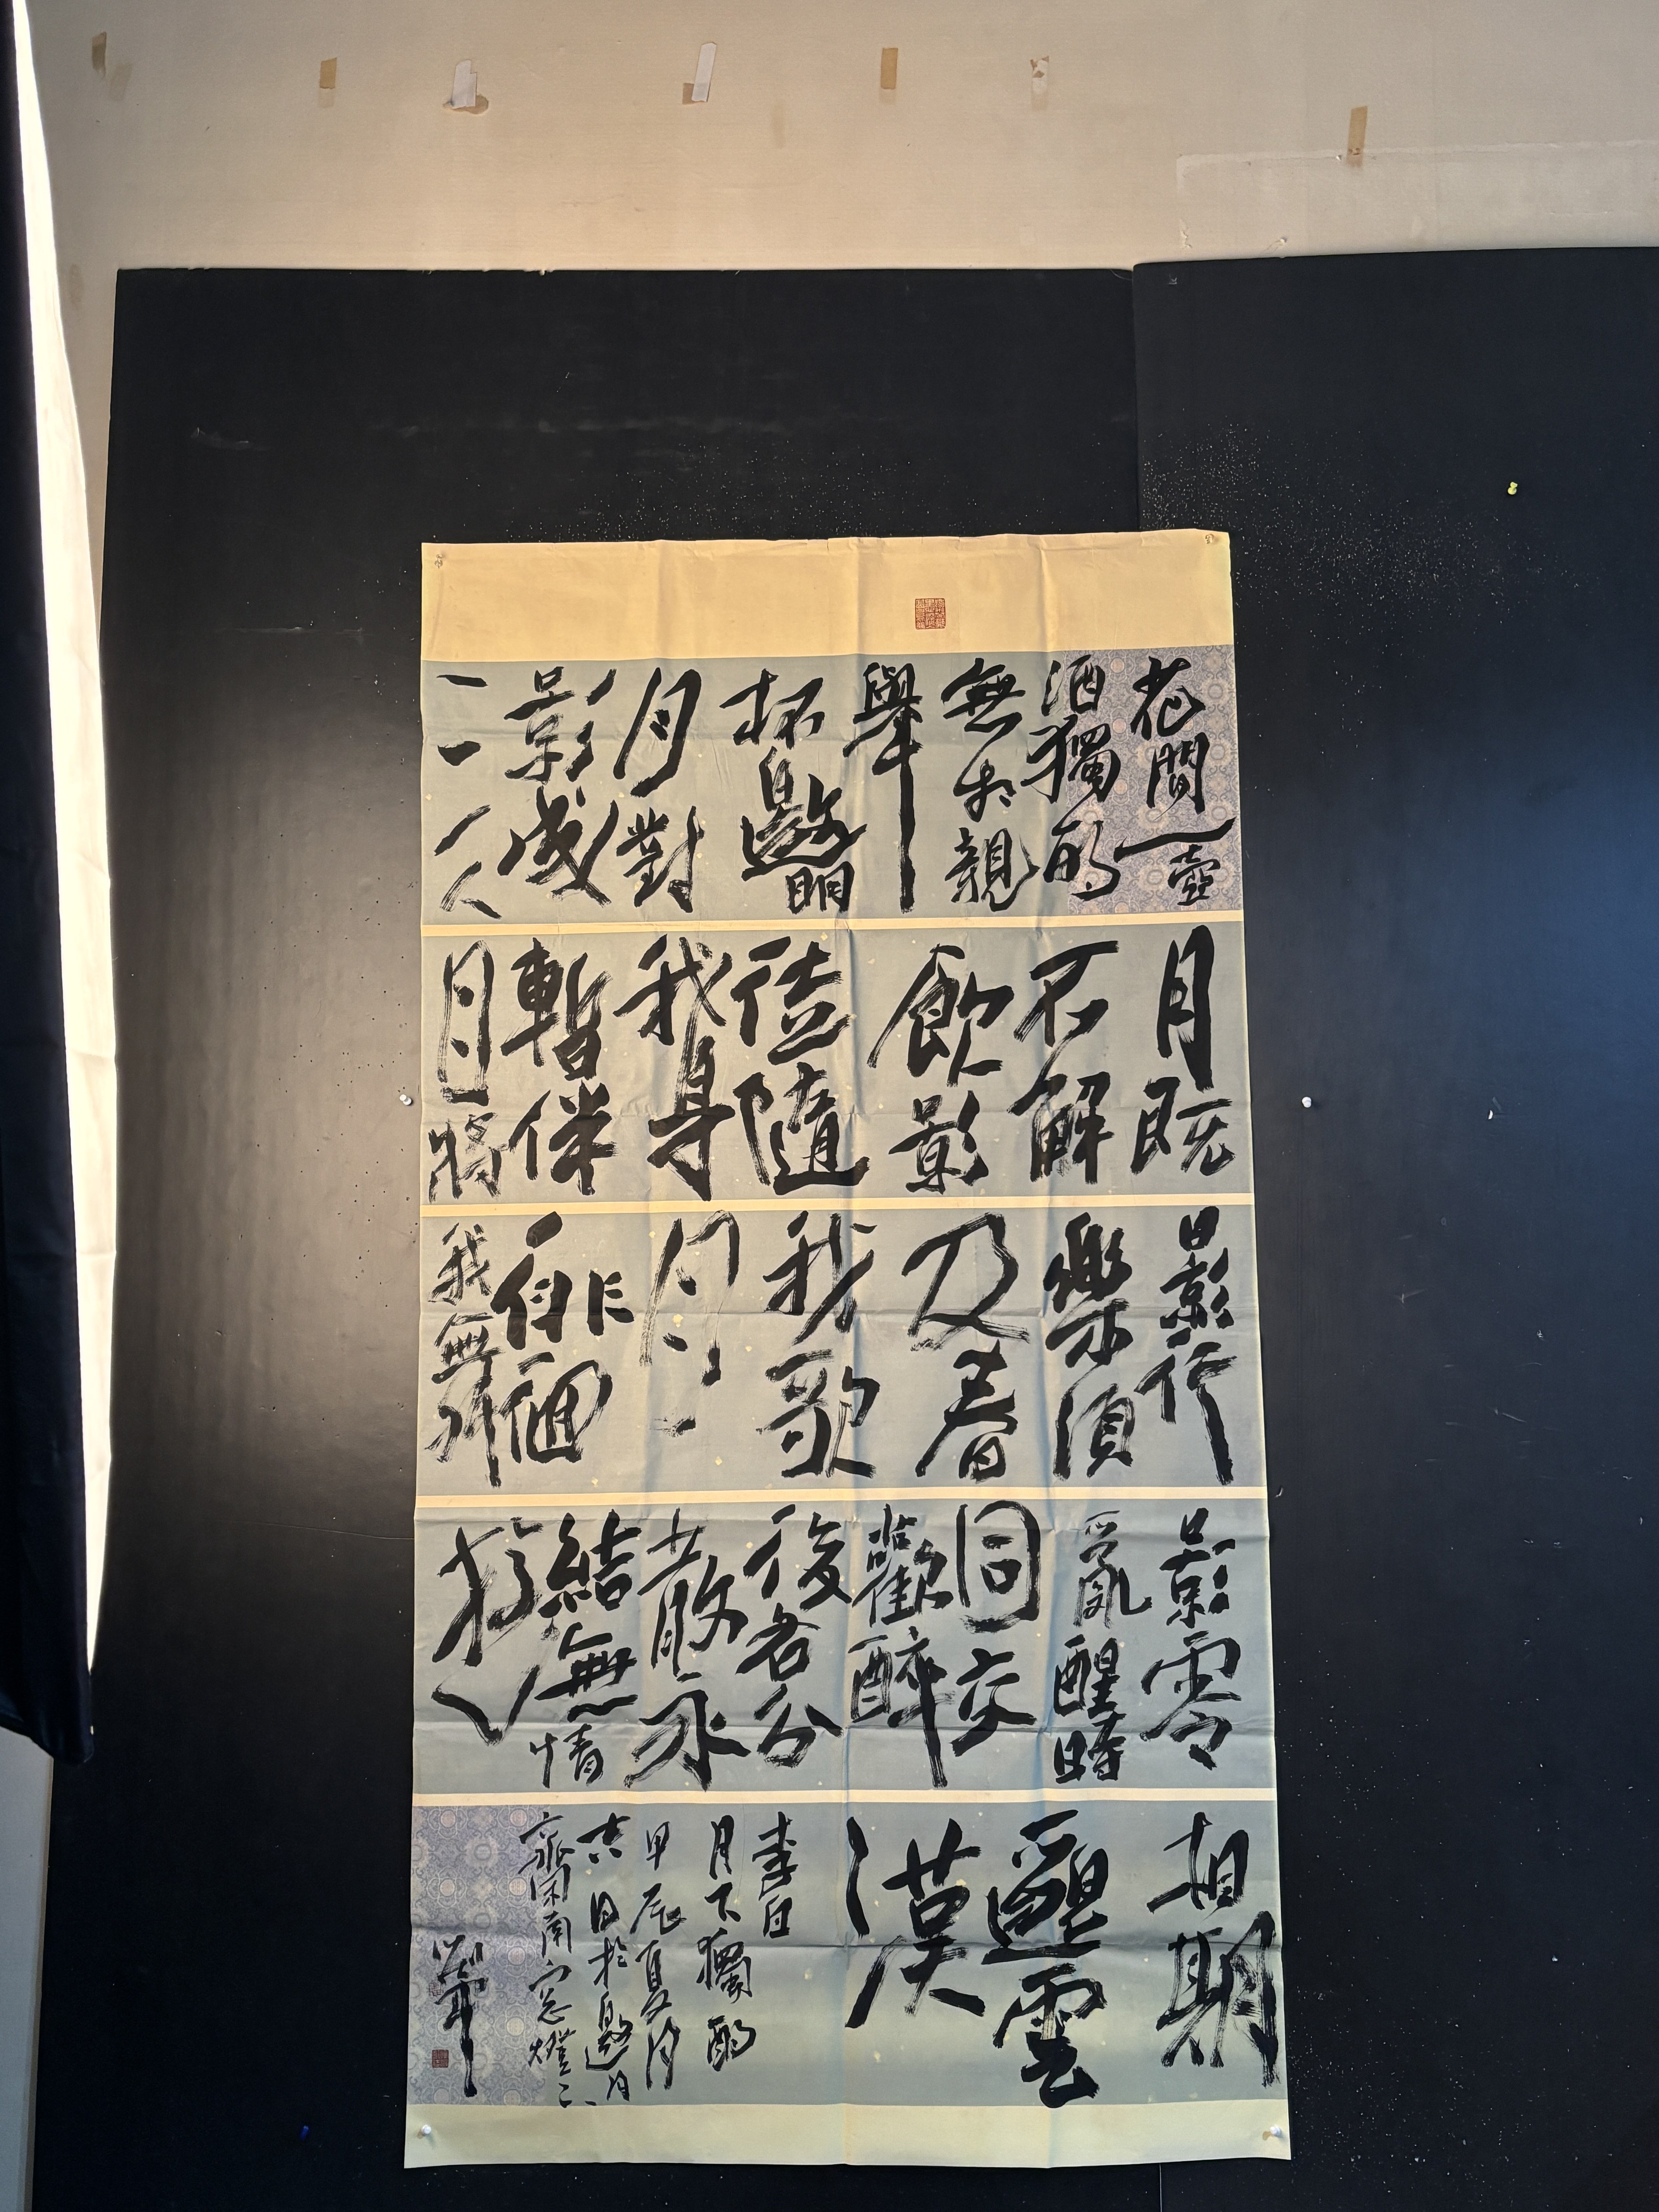 花間一壺
酒獨酌
無相親
舉
杯邀明
月對
影成
三人
月既
不解
飲影
徒隨
我身
暫伴
月將
影行
樂須
及春
我歌
月
徘徊
我舞
影零
亂醒時
同交
歡醉
後各分
散永
結無情
遊
相期
邈雲
漢
李白
月下獨酌
甲辰夏月
吉日於邀月
齋南窓燈下